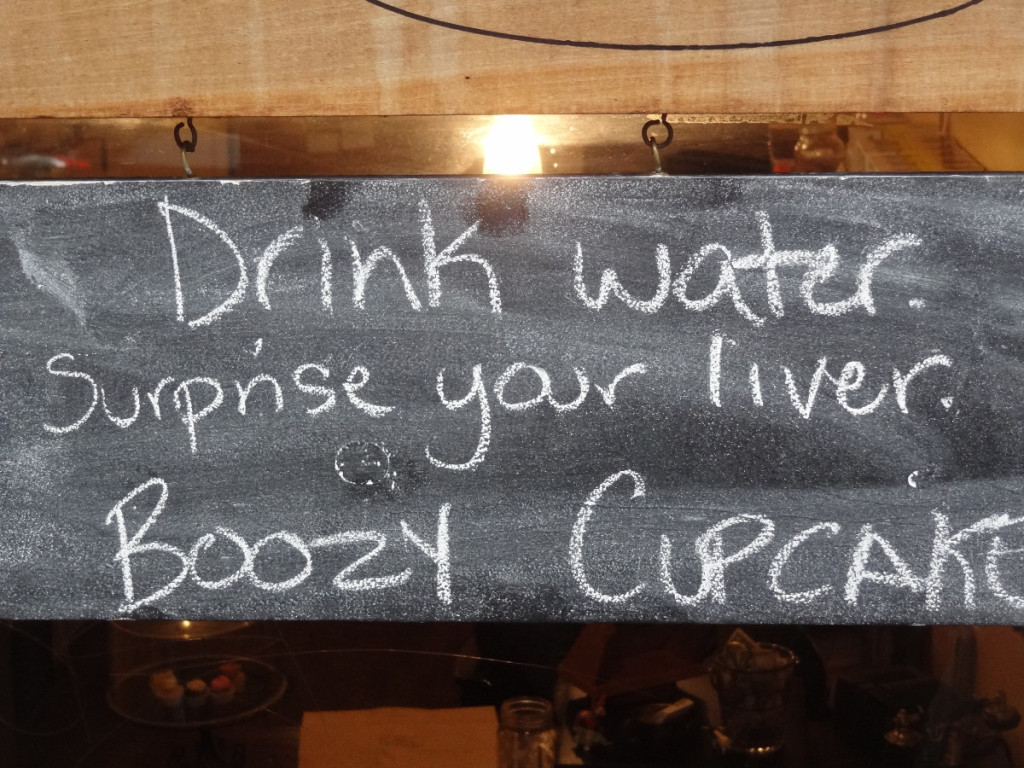 Drink water.
Surprise your liver.
Boozy Cupcake